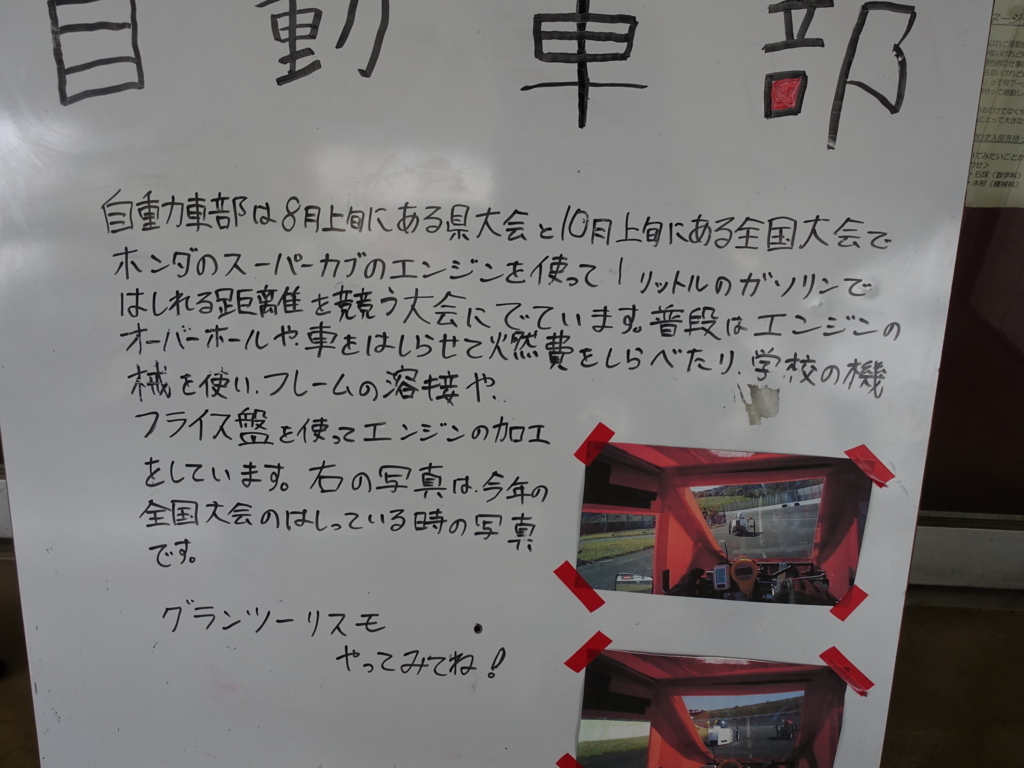 自動車部
自動車部は8月上旬にある県大会と10月上旬にある全国大会で
ホンダのスーパーカブのエンジンを使って1リットルのガソリンで
はしれる距離を競う大会にでています。普段はエンジンの
オーバーホールや、車をはしらせて燃費をしらべたり、学校の機
械を使い、フレームの溶接や、
フライス盤を使ってエンジンの加工
をしています。右の写真は、今年の
全国大会のはしっている時の写真
です。
グランツーリスモ
やってみてね!